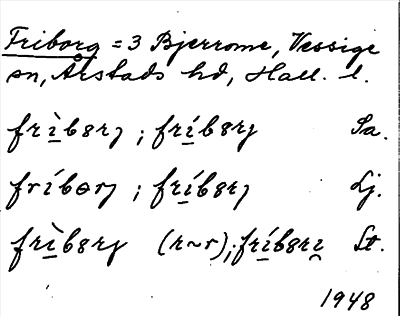 Friborg = 3 Bjerrome, Vessige
sn, Årstads hd, Hall. l.
frìbɞrȷ ; fríbɞrȷ Sa.
fríbɵrȷ ; fríbɞrȷ Lj.
frìbɞrȷ (r~r); fríbɞrı St.
1948